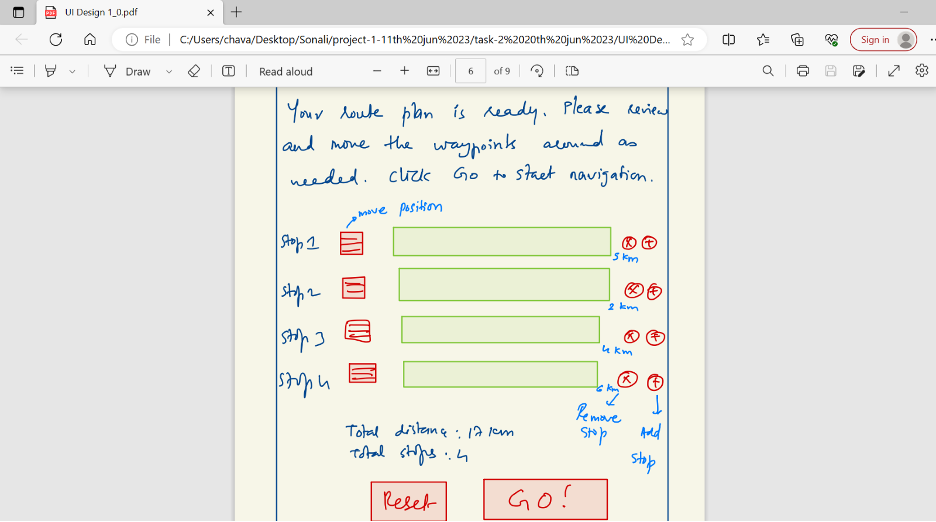 UI Design 1_0.pdf
File C:/Users/chava/Desktop/Sonali/project-1-11th%20jun%2023/task-2%2020th%20jun%2023/UI%20De... Sign in
Draw Read aloud 6 of 9
Your route plan is ready. Please review
and move the waypoints around as
needed. Click Go to start navigation.
move position
Stop 1
5 km
Stop 2
2 km
Stop 3
4 km
Stop 4
6 km
Remove
Stop
Add
Stop
Total distance : 17 km
Total stops : 4
Reset GO!